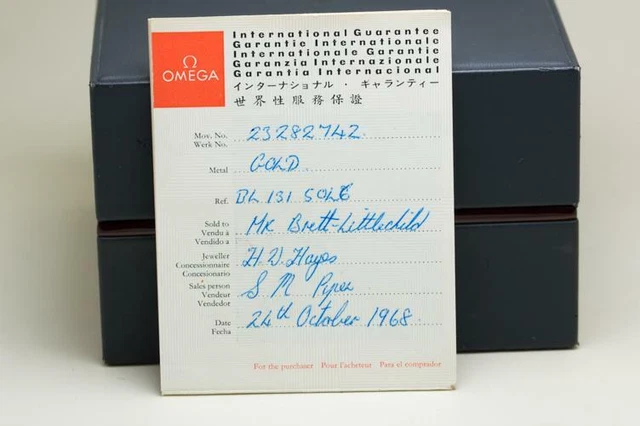 Ω
OMEGA
International Guarantee
Garantie Internationale
Internationale Garantie
Garanzia Internazionale
Garantía Internacional
インターナショナル・ギャランティー
世界性服務保證
Mov. No. 23282742
Werk No.
Metal GOLD
Ref. BL 131 5016
Sold to Mr Brett-Littlechild
Vendu à
Vendido a
Jeweller H. W. Hayes
Concessionnaire
Concesionario
Sales person S M Piper
Vendeur
Vendedor
Date 24th October 1968
Fecha
For the purchaser Pour l'acheteur Para el comprador